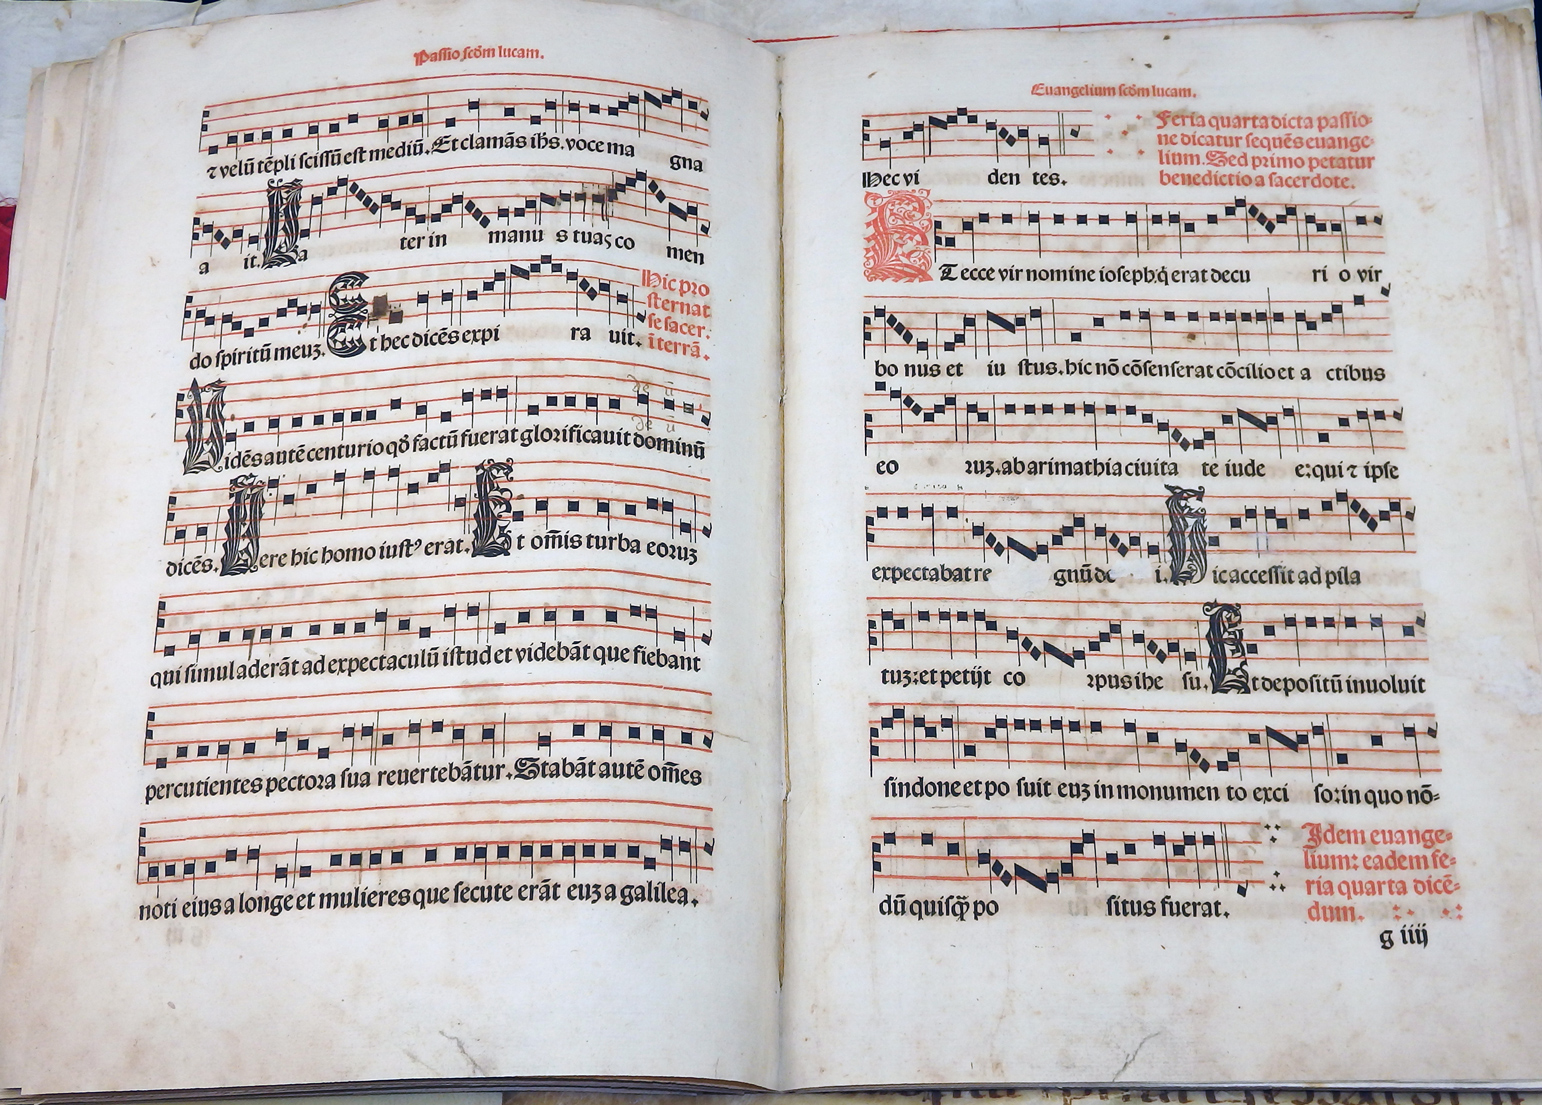 Passio scðm lucam.
⁊ velũ tẽpli scissũ est mediũ. Et clamãs ihs. voce ma gna
a it. Pa ter in manu s tuas co men
do spiritũ meuꝫ. Et hec dicẽs expi ra uit.
Hic pro
sternat
se sacer.
ĩ terrã.
Uidẽs autẽ centurio qð factũ fuerat glorificauit dominũ
dicẽs. Uere hic homo iustꝰ erat. Et om̃is turba eoruꝫ
qui simul aderãt ad expectaculũ istud et videbãt que fiebant
percutientes pectora sua reuertebãtur. Stabãt autẽ om̃es
noti eius a longe et mulieres que secute erãt euꝫ a galilea.
Euangelium scðm lucam.
Hec vi den tes.
Feria quarta dicta passio-
ne dicatur sequẽs euange-
lium. Sed primo petatur
benedictio a sacerdote.
ET ecce vir nomine ioseph: q̃ erat decu ri o vir
bo nus et iu stus. hic nõ cõsenserat cõcilio et a ctibus
eo ruꝫ. ab arimathia ciuita te iude e: qui ⁊ ipse
expectabat re gnũ de i. Hic accessit ad pila
tuꝫ: et petijt co rpus ihe su. Et depositũ inuoluit
sindone et po suit euꝫ in monumen to exci so: in quo nõ-
dũ quisq̃ po situs fuerat.
Idem euange-
lium: eadem fe-
ria quarta dicẽ-
dum.
g iiij